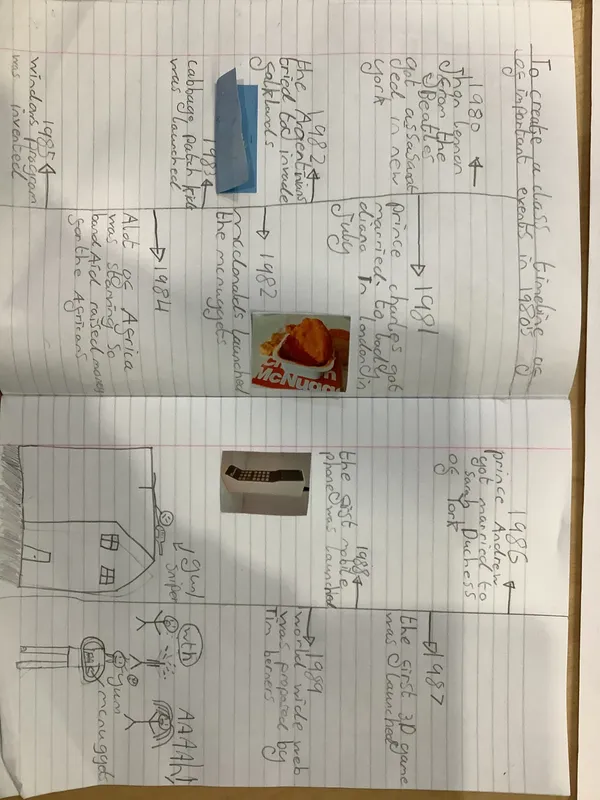 To create a class timeline of
of important events in 1980s
1980
Jhgn lennon
from the
Beatles
got assasanat
ged in new
york
1981
prince charles got
married to lady
diana in london in
July
1982
the Argentinians
tried to invade
falklands
1982
mcdonalds launched
the mcnuggets
McNugg
1983
cabbage patch kids
was launched
1984
Alot of Africa
was starving so
band Aid raised money
for the Africans
1985
windows program
was invented
1986
prince Andrew
got married to
sarah Duchess
of York
1987
the first 3D game
was launched
1988
the first mobile
phone was launched
1989
world wide web
was proposed by
Tim berners
gun
sniper
wth
AAAAh!
yum
mcnuggets